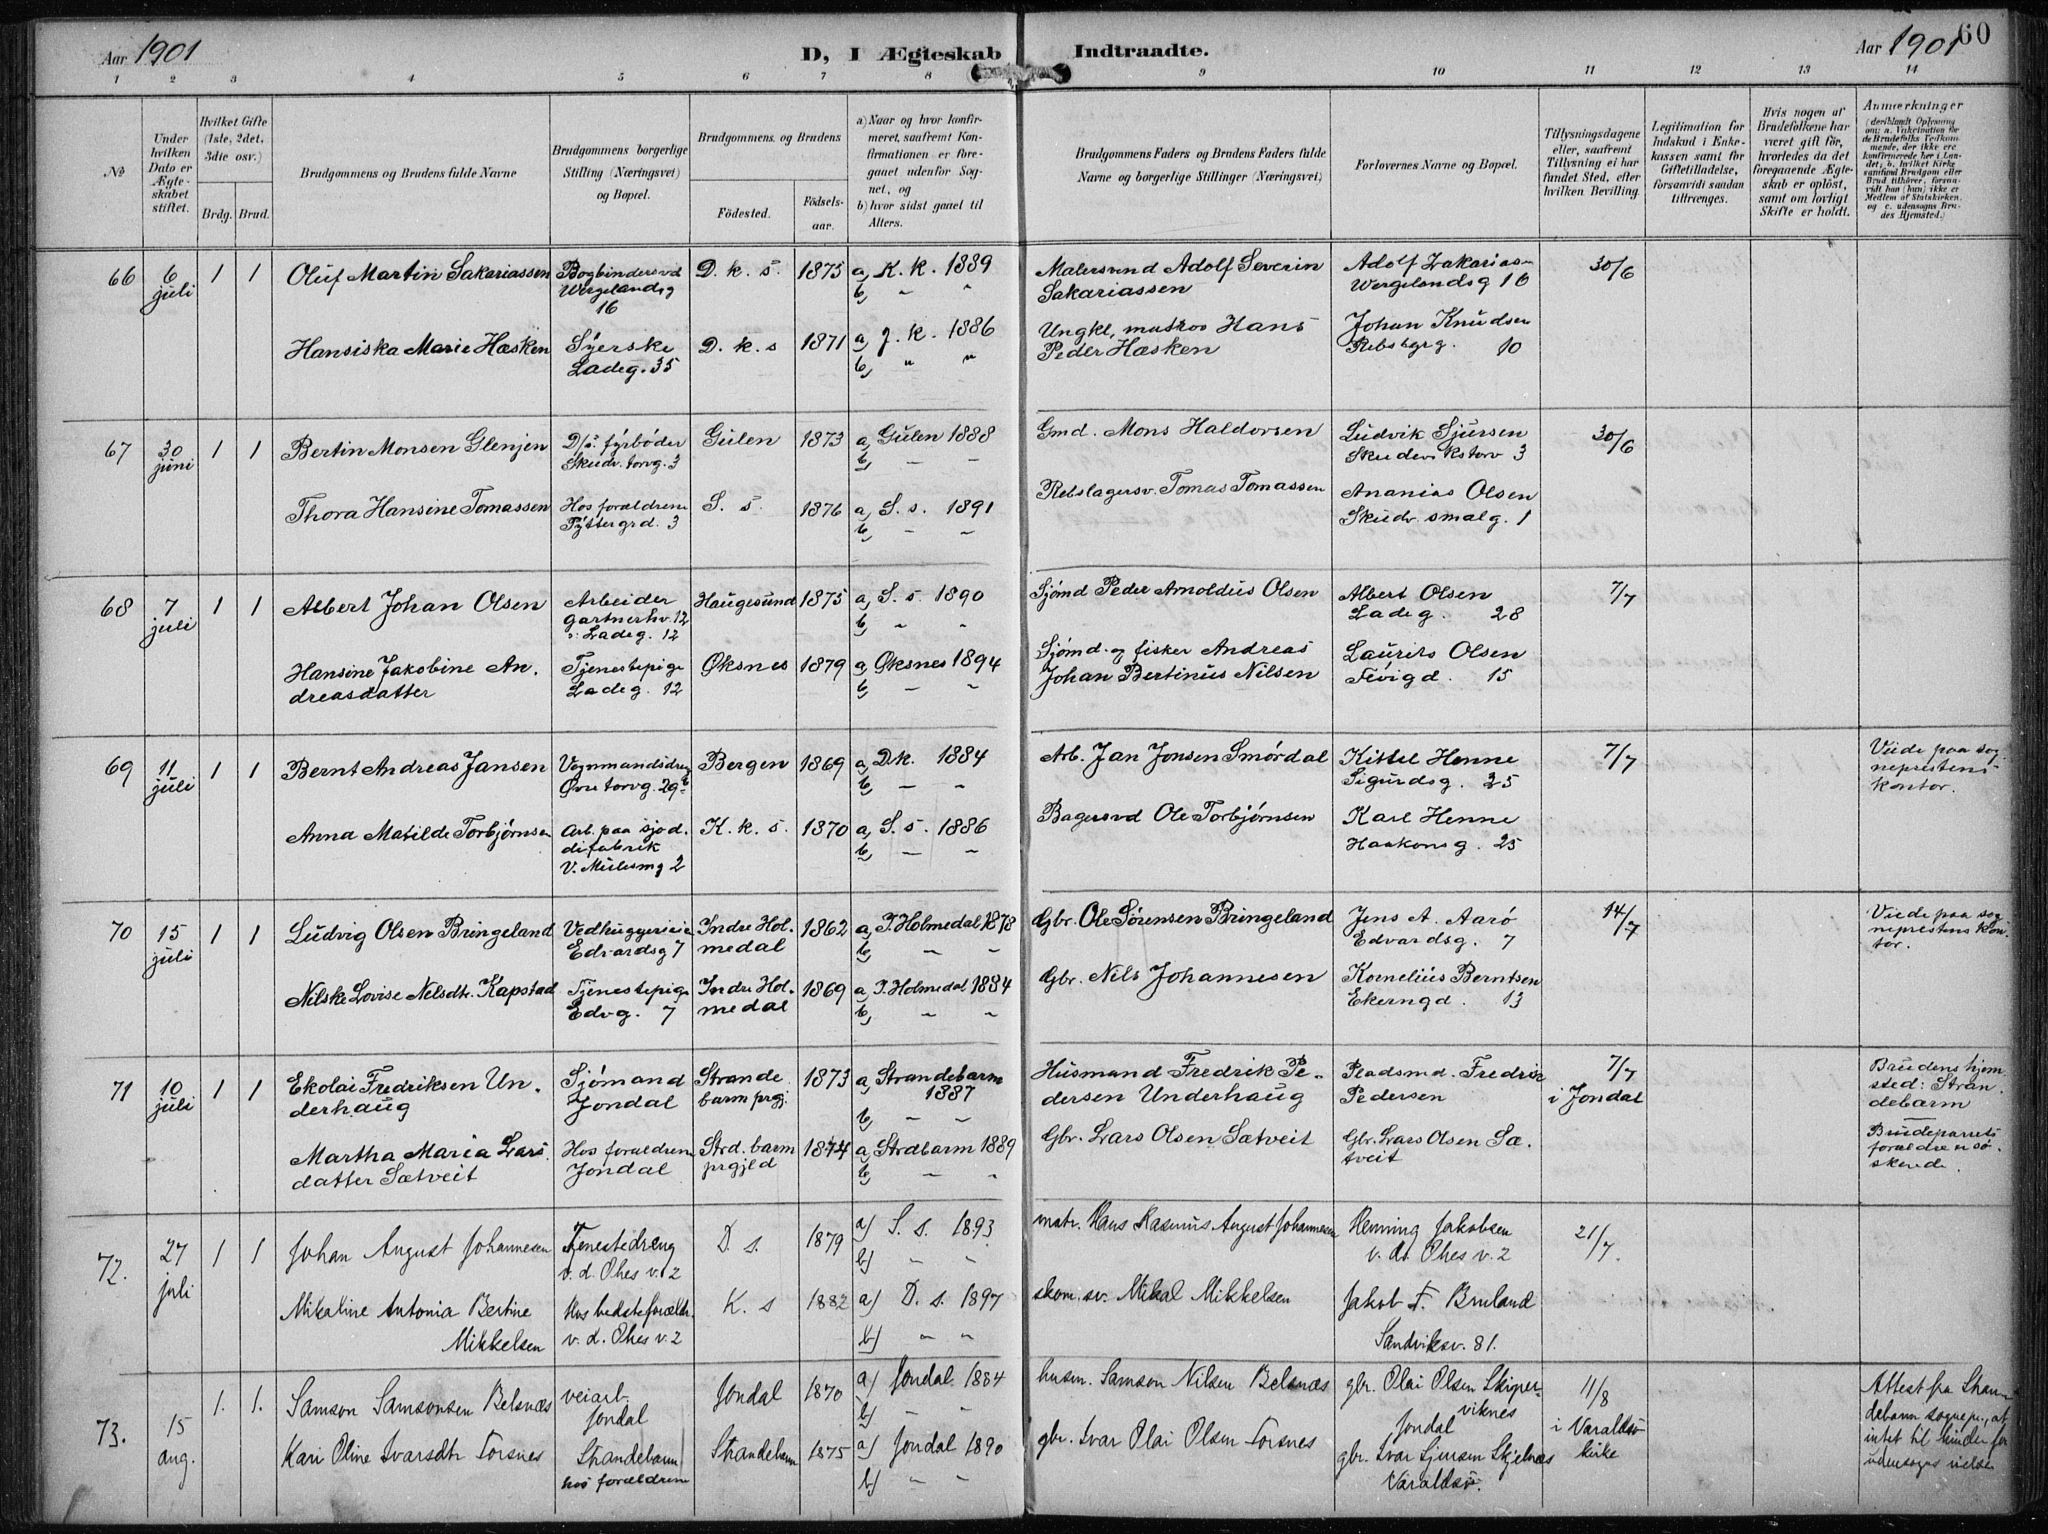 Aar 1901
D, I Ægteskab Indtraadte.
Aar 1901
60
1 2 3 4 5 6 7 8 9 10 11 12 13 14
No
Under hvilken Dato er Ægteskabet stiftet.
Hvilket Gifte (1ste, 2det, 3die osv.)
Brdg. Brud.
Brudgommens og Brudens fulde Navne
Brudgommens borgerlige Stilling (Næringsvei) og Bopæl.
Brudgommens og Brudens
Födested.
Födselsaar.
a) Naar og hvor konfirmeret, saafremt Konfirmationen er foregaaet udenfor Sognet, og
b) hvor sidst gaaet til Alters.
Brudgommens Faders og Brudens Faders fulde Navne og borgerlige Stillinger (Næringsvei)
Forlovernes Navne og Bopæl.
Tillysningsdagene eller, saafremt Tillysning ei har fundet Sted, efter hvilken Bevilling.
Legitimation for Indskud i Enkekassen samt for Giftetilladelse, forsaavidt saadan tiltrænges.
Hvis nogen af Brudefolkene har været gift för, hvorledes da det foregaaende Ægteskab er oplöst, samt om lovligt Skifte er holdt.
Anmærkninger
66
6 juli
1 1
Oluf Martin Sakariassen
Bogbindersvd
Wergelandsg
16
D. k. s. 1875
a, K. k. 1889
b, " "
Malersvend Adolf Severin
Sakariassen
Adolf Zakarias-
Wergelandsg 16
30/6
Hansiska Marie Hæsken
Syerske
Ladeg. 35
D. k. s 1871
a, J. k. 1886
b, " "
Ungkl, matros Hans
Peder Hæsken
Johan Knudsen
Rebsbgrg. 10
67
30 juni
1 1
Bertin Monsen Glenjen
D/s. fyrbøder
Skudv. torvg. 3
Gulen 1873
a, Gulen 1888
b, — —
Gmd. Mons Haldorsen
Ludvik Sjursen
Skudevikstorv 3
30/6
Thora Hansine Tomassen
Hos forældrene
Pyttergrd. 3
S. s. 1876
a, S. s. 1891
b, — —
Rebslagersv. Tomas Tomassen
Ananias Olsen
Skudv. smalg. 1
68
7 juli
1 1
Albert Johan Olsen
Arbeider
Gartnerhv. 12
: Ladeg. 12
Haugesund 1875
a, S. s. 1890
b, " "
Sjømd Peder Arnoldus Olsen
Albert Olsen
Ladeg. 28
7/7
Hansine Jakobine An-
dreasdatter
Tjenestepige
Ladeg. 12
Øksnes 1879
a, Øksnes 1894
b, — —
Sjømd. og fisker Andreas
Johan Bertinus Nilsen
Laurits Olsen
Fevigd. 15
69
11 juli
1 1
Bernt Andreas Jansen
Vognmandsdreng
Øvretorvg. 29b
Bergen 1869
a, D.k. 1884
b, — —
Arb. Jan Jonsen Smørdal
Kittel Henne
Sigurdsg. 25
7/7
Viede paa sog-
neprestens
kontor.
Anna Matilde Torbjørnsen
Arb. paa sjod-
difabrik
V. Mulesmg 2
K. k. s. 1870
a, S. s. 1886
b, — —
Bagersvd Ole Torbjørnsen
Karl Henne
Haakonsg. 25
70
15 juli
1 1
Ludvig Olsen Bringeland
Vedhuggereier
Edvardsg 7
Indre Hol-
medal
1862
a, I. Holmedal 1878
b, — —
Gbr. Ole Sørensen Bringeland
Jens A. Aarø
Edvardsg. 7
14/7
Viede paa sog
neprestens kon-
tor.
Nilske Lovise Nelsdtr. Kapstad
Tjenestepige
Edvg. 7
Indre Hol-
medal
1869
a, I. Holmedal 1884
b, — —
Gbr. Nils Johannesen
Kornelius Berntsen
Ekerngd. 13
71
10 juli
1 1
Ekolai Fredriksen Un-
derhaug
Sjømand
Jondal
Strande
barm prgj.
1873
a, Strandebarm
1887
b, — —
Husmand Fredrik Pe-
dersen Underhaug
Pladsmd. Fredrik
Pedersen
7/7
i Jondal
Brudens hjem
sted: Stran
debarm
Martha Maria Lars-
datter Sætveit
Hos forældrene
Jondal
Strd. barm
prgjld
1874
a, Strdbarm 1889
b, — "
Gbr. Lars Olsen Sætveit
Gbr. Lars Olsen Sæ-
tveit
Brudeparrets
forældre er sø-
skende.
72.
27 juli
1 1
Johan August Johannesen
Tjenestedreng
v. d. Ohes v. 2
D. s. 1879
a) S. s. 1893
b) " "
matr. Hans Rasmus August Johannesen
Henning Jakobsen
v. d. Ohes v. 2
21/7.
Mikaline Antonia Bertine
Mikkelsen
Hos bedsteforældr.
v. d. Ohes v. 2
K. s 1882
a) D. s. 1897
b) — —
skom. sv. Mikal Mikkelsen
Jakob T. Bruland
Sandviksv. 81.
73.
15 aug.
1. 1.
Samson Samsonsen Belsnæs
veiarb.
Jondal
Jondal 1870
a) Jondal 1884
b) " "
husm. Samson Nilsen Belsnæs
gbr. Olai Olsen Skiper-
viknes
Jondal
11/8
i Varaldsö
kirke
Attest fra Stran-
debarm sognepr., at
intet til hinder for
udensogns vielse
Kari Oline Ivarsdtr Torsnes
Strandebarm
hos forældrene
Strandebarm 1875
a) Jondal 1890
b) " "
gbr. Ivar Olai Olsen Torsnes
gbr. Ivar Sjursen Skjelnæs
Varaldsö.